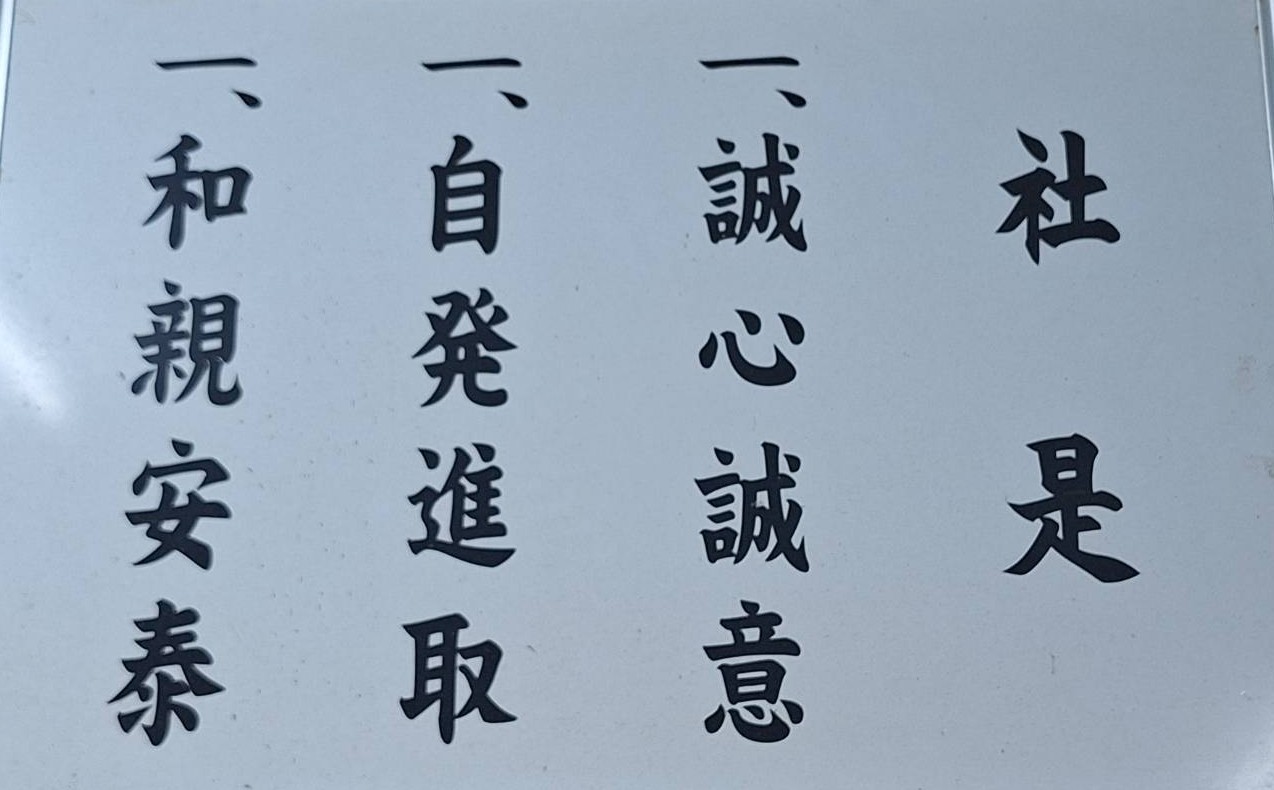 社是
一、誠心誠意
一、自発進取
一、和親安泰